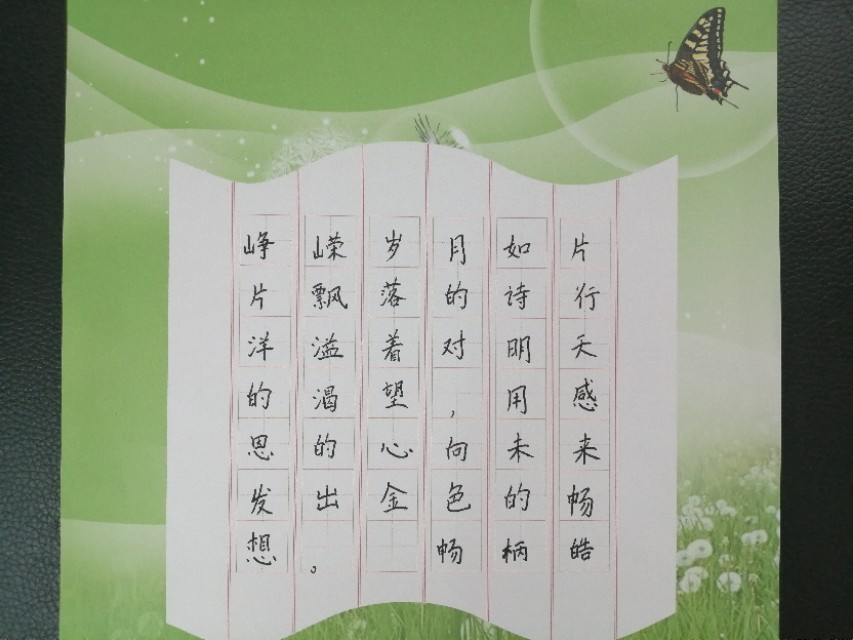 峥嵘岁月如片
片飘落的诗行
洋溢着对明天
的渴望，用感
恩的心向未来
发出金色的畅
想。 畅柄皓